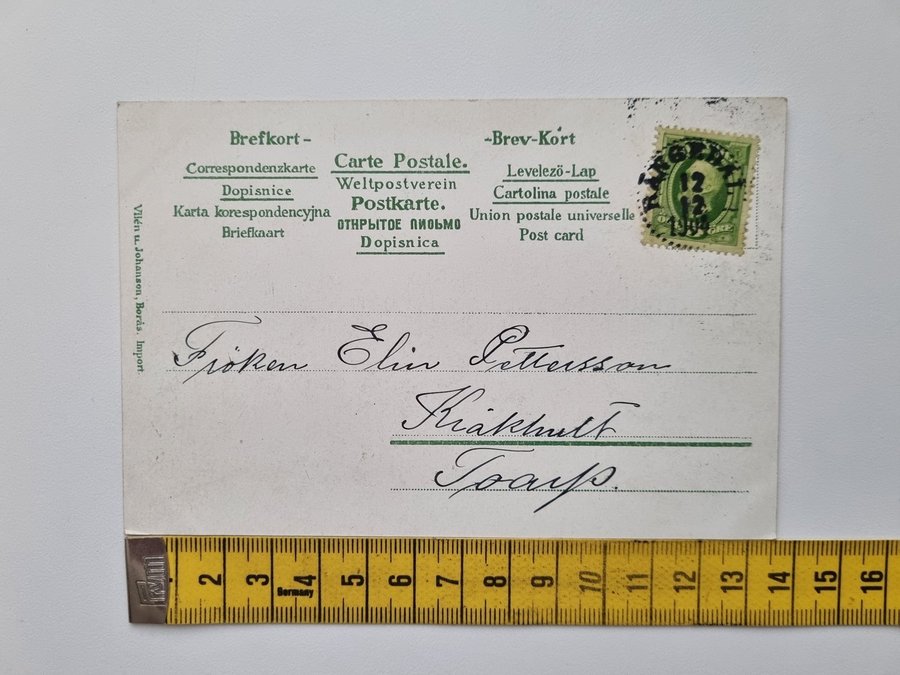 Brefkort - -Brev-Kórt
Correspondenzkarte
Dopisnice
Karta korespondencyjna
Briefkaart
Carte Postale.
Weltpostverein
Postkarte.
ОТКРЫТОЕ ПИСЬМО
Dopisnica
Levelezö-Lap
Cartolina postale
Union postale universelle
Post card
12
12
Vilén u. Johanson, Borås. Import
Fröken Elin Pettersson
Kråkhult
Toarp.
2 3 4 5 6 7 8 9 10 11 12 13 14 15 16
Germany